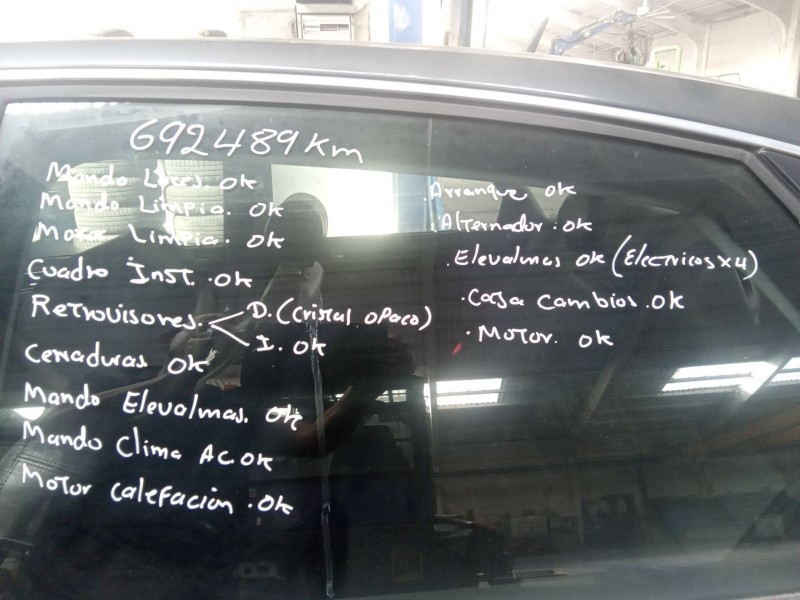 692489 Km
Mando Luces. OK
Mando Limpia. OK
Motor Limpia. OK
Cuadro Inst. OK
Retrovisores. D. (Cristal opaco)
I. OK
Cerraduras OK
Mando Elevalunas. OK
Mando Clima AC. OK
Motor Calefacion. OK
.Arranque OK
.Alternador. OK
.Elevalunas OK (Electricos x4)
.Caja Cambios. OK
.Motor. OK